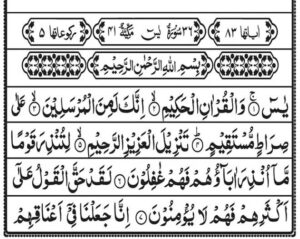 اٰیاتها ۸۳ ۳۶ سُوْرَةُ یٰسٓ مَكِّیَّةٌ ۴۱ رکوعاتها ۵
بِسْمِ اللّٰهِ الرَّحْمٰنِ الرَّحِیْمِ
یٰسٓ ۱ وَ الْقُرْاٰنِ الْحَكِیْمِ ۲ اِنَّكَ لَمِنَ الْمُرْسَلِیْنَ ۳ عَلٰی
صِرَاطٍ مُّسْتَقِیْمٍ ۴ تَنْزِیْلَ الْعَزِیْزِ الرَّحِیْمِ ۵ لِتُنْذِرَ قَوْمًا
مَّاۤ اُنْذِرَ اٰبَآؤُهُمْ فَهُمْ غٰفِلُوْنَ ۶ لَقَدْ حَقَّ الْقَوْلُ عَلٰۤی
اَكْثَرِهِمْ فَهُمْ لَا یُؤْمِنُوْنَ ۷ اِنَّا جَعَلْنَا فِیْۤ اَعْنَاقِهِمْ